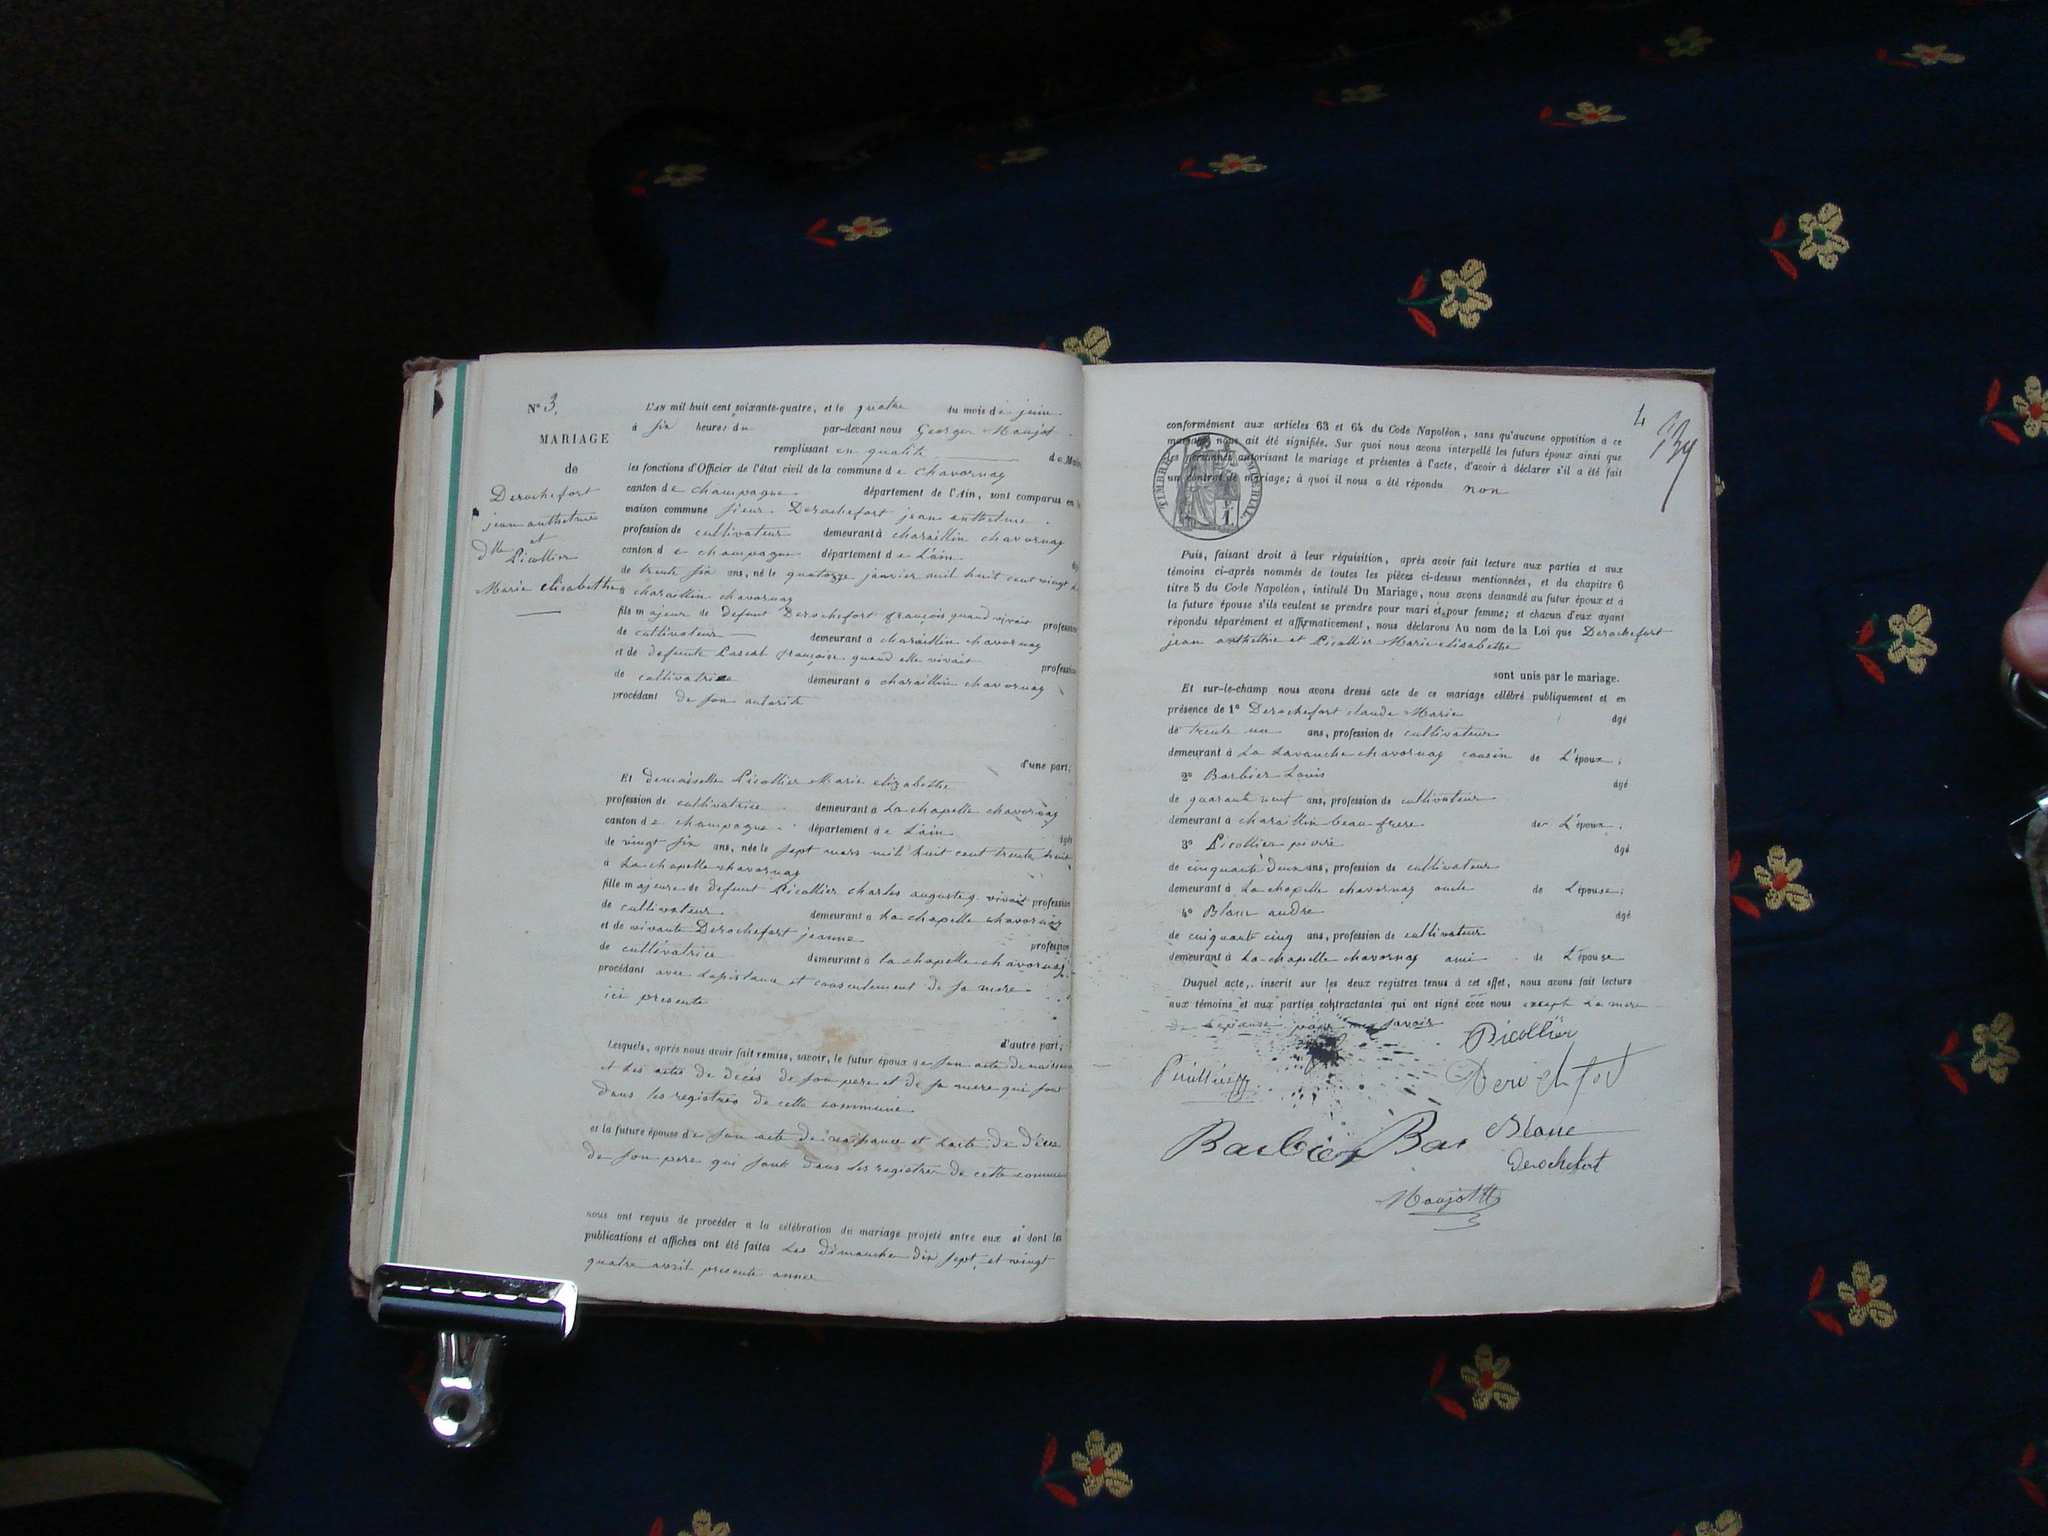 N° 3.
MARIAGE
de
Derochefort
jean anthelme
et
dlle Picollier
Marie elisabethe
L'AN mil huit cent soixante-quatre, et le quatre du mois de juin
à six heures du par-devant nous Georges Maujot
remplissant en qualité de Maire
les fonctions d'Officier de l'état civil de la commune de chavornay
canton de champagne département de l'Ain, sont comparus en la
maison commune sieur Derochefort jean anthelme
profession de cultivateur demeurant à charaillin chavornay
canton de champagne département de L'ain
de trente six ans, né le quatorze janvier mil huit cent vingt
à charaillin chavornay
fils majeur de defunt Derochefort françois quand vivait profession
de cultivateur demeurant à charaillin chavornay
et de defunte Pascal françoise quand elle vivait profession
de cultivatrice demeurant à charaillin chavornay
procédant de son autorite
d'une part;
Et demoiselle Picollier Marie elizabethe
profession de cultivatrice demeurant à La chapelle chavornay
canton de champagne département de L'ain âgée
de vingt six ans, née le sept mars mil huit cent trente huit
à La chapelle chavornay
fille majeure de defunt Picollier charles auguste q. vivait profession
de cultivateur demeurant à La chapelle chavornay
et de vivante Derochefort jeanne profession
de cultivatrice demeurant à la chapelle chavornay
procédant avec Lasistance et consentement de sa mere
ici presente
d'autre part;
Lesquels, après nous avoir fait remise, savoir, le futur époux de son acte de naissance
et des actes de décés de son pere et de sa mere qui sont
dans les registres de cette commune
et la future épouse de son acte de naissance et Lacte de décés
de son pere qui sont dans les registres de cette commune
nous ont requis de procéder à la célébration du mariage projeté entre eux et dont les
publications et affiches ont été faites Les dimanche dix sept, et vingt
quatre avril presente annee
4
conformément aux articles 63 et 64 du Code Napoléon, sans qu'aucune opposition à ce
mariage nous ait été signifiée. Sur quoi nous avons interpellé les futurs époux ainsi que
les personnes autorisant le mariage et présentes à l'acte, d'avoir à déclarer s'il a été fait
un contrat de mariage; à quoi il nous a été répondu non
TIMBRE IMPERIAL
Puis, faisant droit à leur réquisition, après avoir fait lecture aux parties et aux
témoins ci-après nommés de toutes les pièces ci-dessus mentionnées, et du chapitre 6
titre 5 du Code Napoléon, intitulé Du Mariage, nous avons demandé au futur époux et à
la future épouse s'ils veulent se prendre pour mari et pour femme; et chacun d'eux ayant
répondu séparément et affirmativement, nous déclarons Au nom de la Loi que Derochefort
jean anthelme et Picollier Marie elisabethe
sont unis par le mariage.
Et sur-le-champ nous avons dressé acte de ce mariage célébré publiquement et en
présence de 1° Derochefort claude Marie âgé
de trente un ans, profession de cultivateur
demeurant à La Lavanche chavornay cousin de L'époux;
2° Barbier Louis âgé
de quarante neuf ans, profession de cultivateur
demeurant à charaillin beau frere de L'époux;
3° Picollier âgé
de cinquante deux ans, profession de cultivateur
demeurant à La chapelle chavornay de L'épouse;
4° Blanc andre âgé
de cinquante cinq ans, profession de cultivateur
demeurant à La chapelle chavornay ami de L'épouse
Duquel acte, inscrit sur les deux registres tenus à cet effet, nous avons fait lecture
aux témoins et aux parties contractantes qui ont signé avec nous except La mere
de Lepouse pour ne savoir
Picollier
Derochefort
Barbier Bar Blanc
Derochefort
Maujot